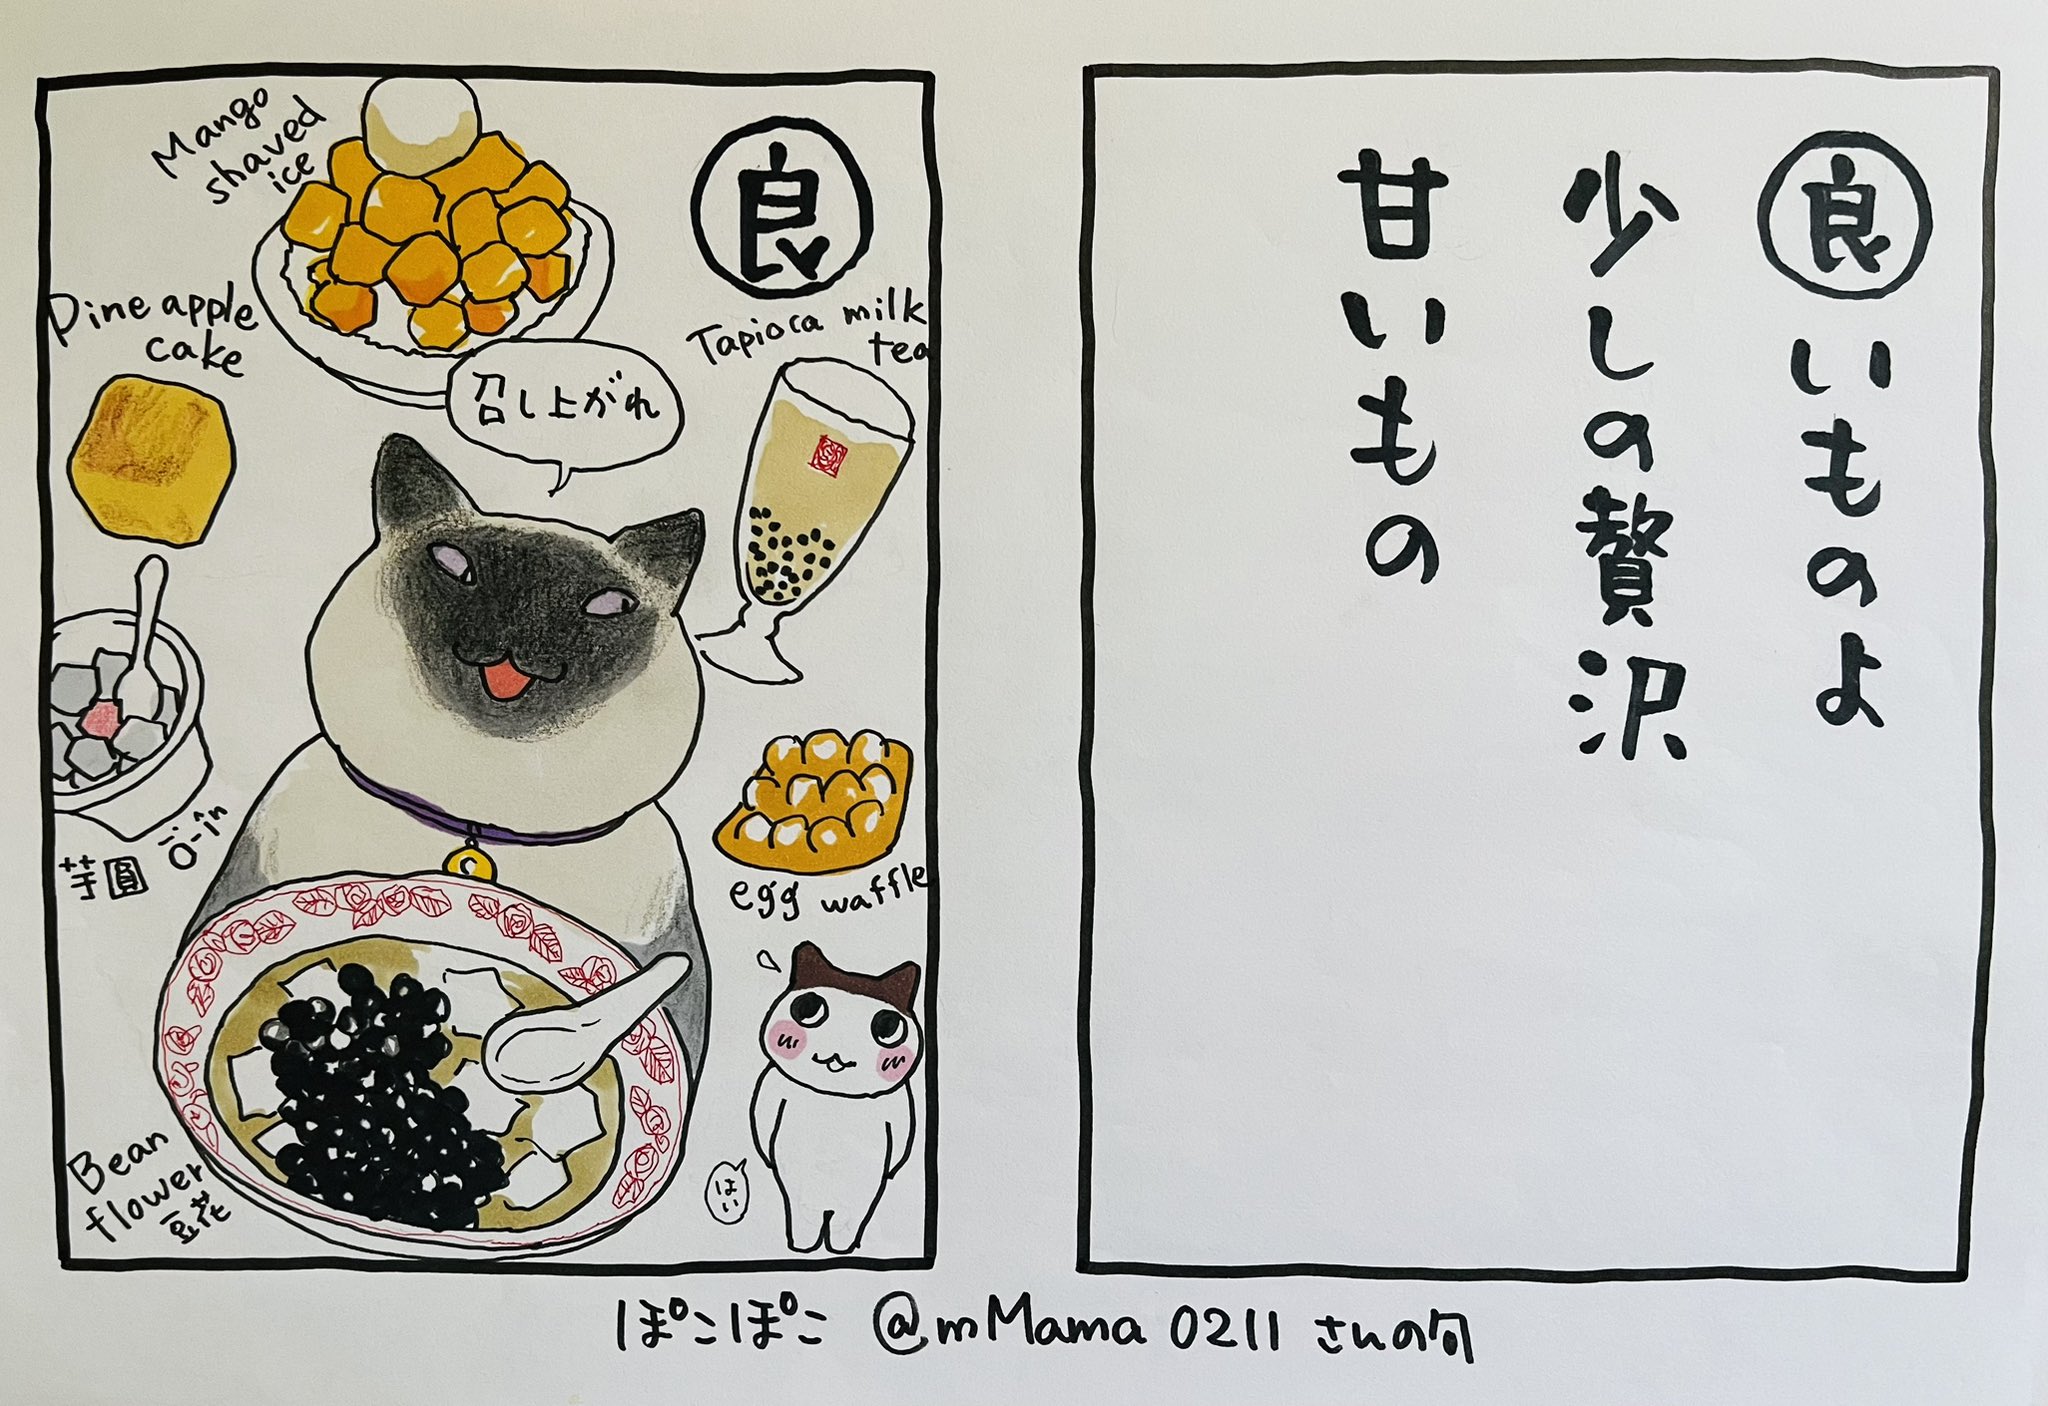 Mango
shaved
ice
良
Pine apple
cake
Tapioca milk
tea
召し上がれ
芋圓 ō-în
egg waffle
Bean
flower
豆花
はい
良いものよ
少しの贅沢
甘いもの
ぽこぽこ @mMama 0211 さんの句